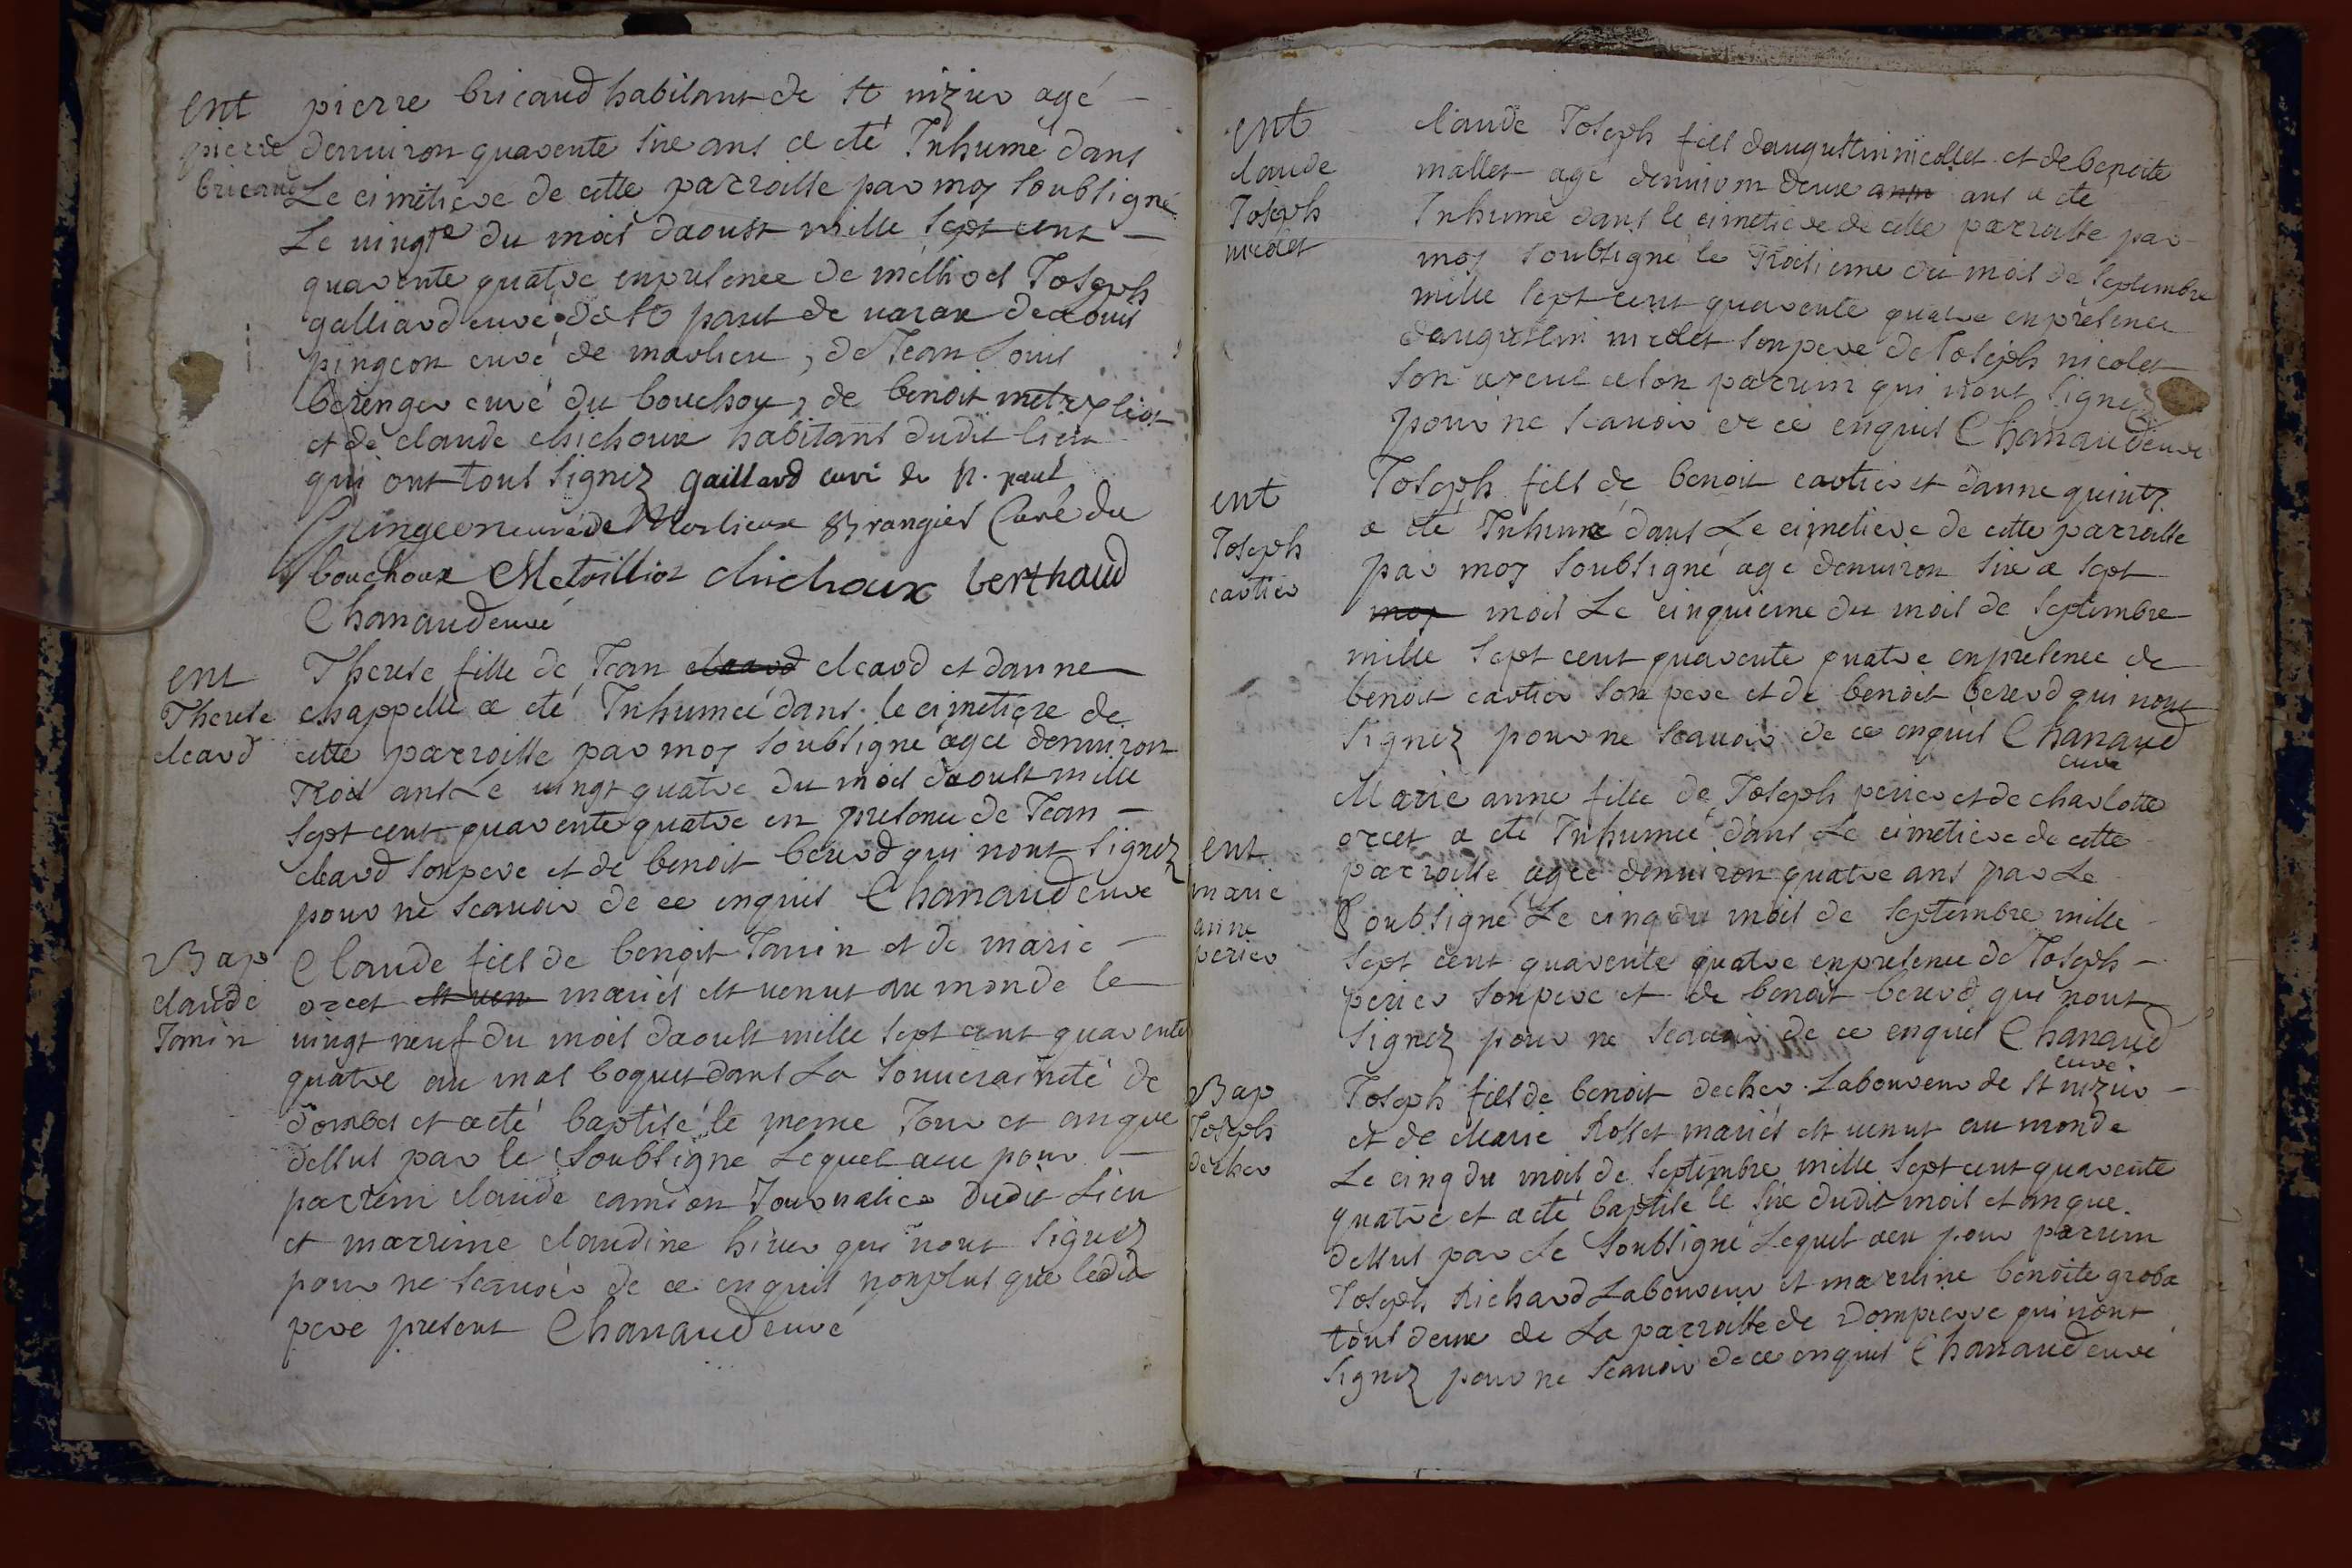 ent
pierre
bricaud
pierre bricaud habitant de st nizier agé
denuiron quarente six ans a eté Inhumé dans
Le cimetiere de cette parroisse par moy soubsigné
Le uingte du mois daoust mille sept cent
quarente quatre enpresence de messires Joseph
galliard curé de st paul de uarax de Louis
pingeon curé de marlieu, de Jean Louis
berenger curé du bouchoux, de benoit metrilliot
et de claude chichoux habitans dudit lieu
qui ont tous signez gaillard curé de st. paul
Pingeon curé de Marlieux Brangier Curé du
bouchoux Metrilliot chichoux berthaud
Chanaud curé
ent
Therese
cleard
Therese fille de Jean cleard cleard et danne
chappelle a eté Inhumeé dans le cimetiere de
cette parroisse par moy soubsigné ageé denuiron
trois ans Le uingt quatre du mois daoust mille
sept cent quarente quatre en presence de Jean
cleard son pere et de benoit bererd qui nont signez
pour ne scauoir de ce enquis Chanaud curé
Bap
claude
Janin
Claude fils de benoit Janin et de marie
orcet est uen mariés est uenut au monde le
uingt neuf du mois daoust mille sept cent quarente
quatre au mas boguet dans La souueraineté de
dombes et a eté baptisé le meme Jour et an que
dessus par le soubsigné Lequel a eu pour
parrein claude camion Journalier dudit Lieu
et marreine claudine hiuer qui nont signez
pour ne scauoir de ce enquis nonplus que ledit
pere present Chanaud curé
ent
claude
Joseph
nicolet
claude Joseph fils daugustin nicollet et de benoite
mallet agé denuiron deux anns ans a eté
Inhumé dans le cimetiere de cette parroisse par
moy soubsigné le troisieme du mois de septembre
mille sept cent quarente quatre enpresence
daugustin nicolet son pere de Joseph nicolet
son ayeul et son parrein qui n'ont signez
pour ne scauoir de ce enquis Chanaud curé
ent
Joseph
cartier
Joseph fils de benoit cartier et danne quinty
a eté Inhumé dans Le cimetiere de cette parroisse
par moy soubsigné agé denuiron six a sept
moy mois Le cinquieme du mois de septembre
mille sept cent quarente quatre enpresence de
benoit cartier son pere et de benoit bererd qui nont
signez pour ne scauoir de ce enquis Chanaud
curé
ent
marie
anne
perier
Marie anne fille de Joseph perier et de charlotte
orcet a eté Inhumeé dans Le cimetiere de cette
parroisse ageé denuiron quatre ans par Le
Soubsigné Le cinq du mois de septembre mille
sept cent quarente quatre enpresence de Joseph
perier son pere et de benoit bererd qui nont
signez pour ne scauoir de ce enquis Chanaud
curé
Bap
Joseph
decher
Joseph fils de benoit decher Laboureur de st nizier
et de Marie Rosset mariés est uenut au monde
Le cinq du mois de septembre mille sept cent quarente
quatre et a eté baptisé le six dudit mois et an que
dessus par Le Soubsigné Lequel a eu pour parrein
Joseph Richard Laboureur et marreine benoite groba
tous deux de La parroisse de Dompierre qui nont
signez pour ne scauoir de ce enquis Chanaud curé